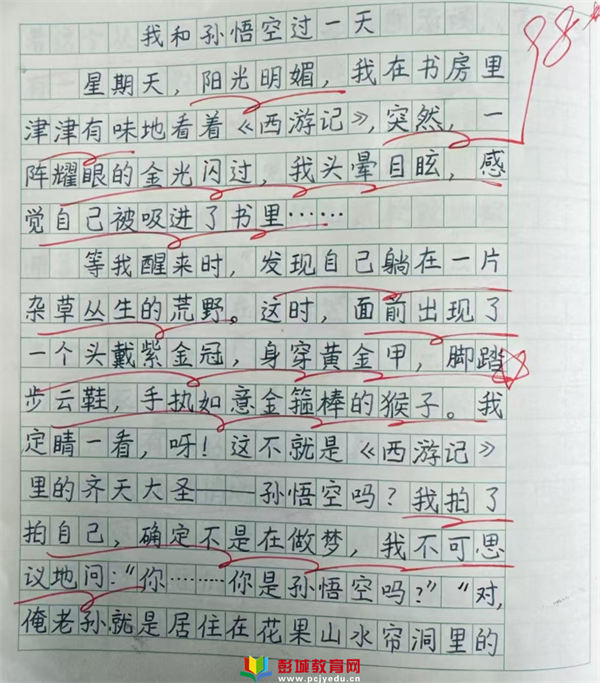 我和孙悟空过一天
98
星期天，阳光明媚，我在书房里
津津有味地看着《西游记》，突然，一
阵耀眼的金光闪过，我头晕目眩，感
觉自己被吸进了书里……
等我醒来时，发现自己躺在一片
杂草丛生的荒野。这时，面前出现了
一个头戴紫金冠，身穿黄金甲，脚踏
步云鞋，手执如意金箍棒的猴子。我
定睛一看，呀！这不就是《西游记》
里的齐天大圣——孙悟空吗？我拍了
拍自己，确定不是在做梦，我不可思
议地问：“你………你是孙悟空吗？”“对，
俺老孙就是居住在花果山水帘洞里的
彭城教育网
www.pcjyedu.cn